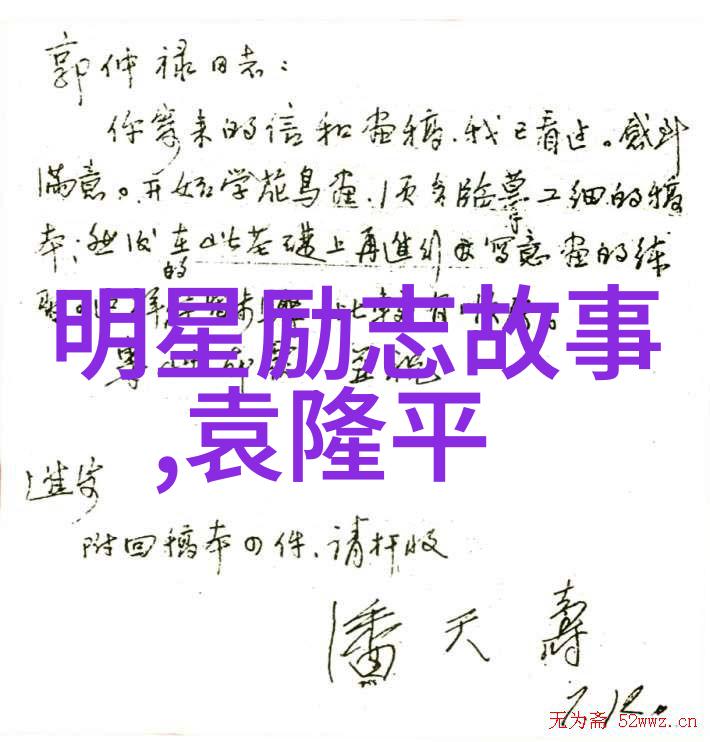 郭仲禄同志：
你寄来的信和画稿，我已看过。感到
满意。开始学花鸟画，须多临摹工细的稿
本；然后在此基础上再进行写意画的练
的
明星励志故事
,袁隆平
进步
附回稿本四件，请检收
潘天寿
7.12.
无为斋 52wwz.cn